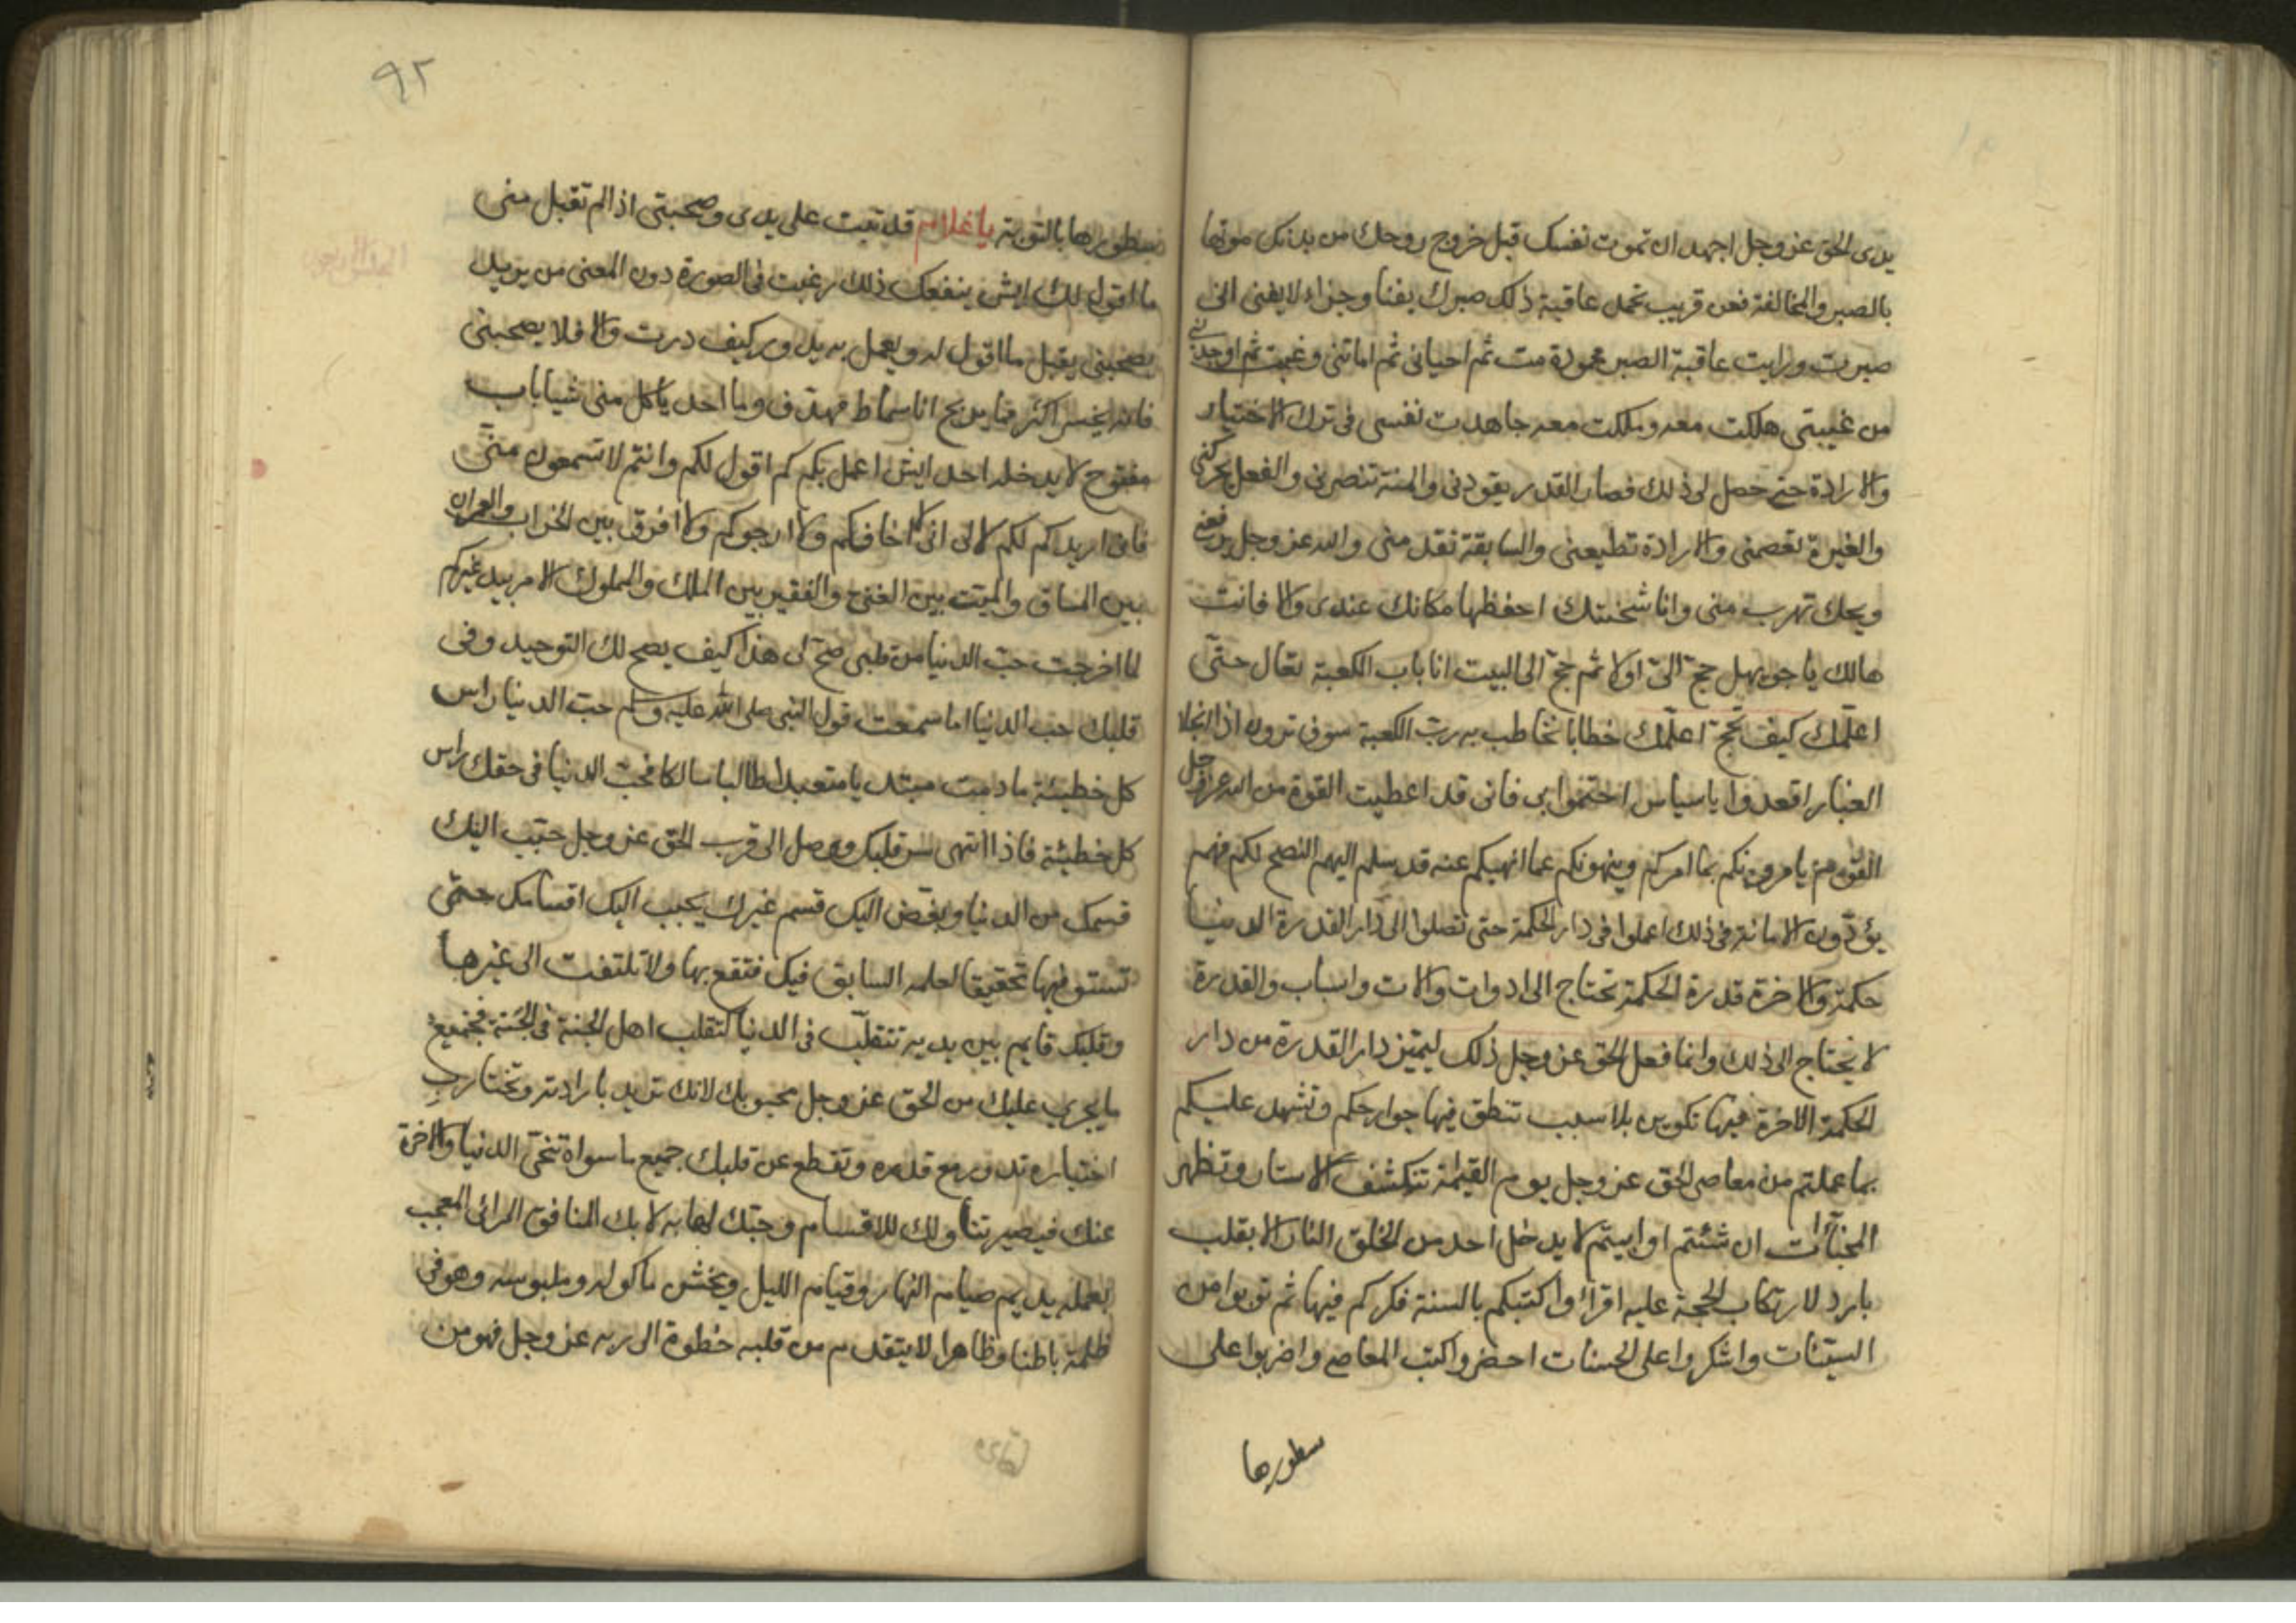 يدى الحق عز وجل اجهد ان تموت نفسك قبل خروج روحك من بدنك موتها
بالصبر والمخالفة فعن قريب تحمد عاقبة ذلك صبرك يفنا وجزاء لا يفنى انى
صبرت ورايت عاقبة الصبر محمودة مت ثم احيانى ثم اماتنى وغبت ثم اوجدنى
من غيبتى هلكت معه وملكت معه جاهدت نفسى فى ترك الاختيار
والارادة حتى حصل لى ذلك فصار القدر يقودنى والمنة تنصرنى والفعل يحركنى
والغيرة تعصمنى والارادة تطيعنى والسابقة تقدمنى والله عز وجل يرفعنى
ويحك تهرب منى وانا شحنتك احفظها مكانك عندى والا فانت
هالك يا جويهل حج الىّ اولا ثم حج الى البيت انا باب الكعبة تعال حتى
اعلمك كيف تحج اعلمك خطابا تخاطب به رب الكعبة سوف ترون اذا انجلا
الغبار اقعدوا يا سياس احتموا بى فانى قد اعطيت القوة من الله عز وجل
القوم يامرونكم بما امركم وينهونكم عما انهيكم عنه قد سلم اليهم النصح لكم فهم
يؤدون الامانة فى ذلك اعملوا فى دار الحكمة حتى تصلوا الى دار القدرة الدنيا
حكمة والاخرة قدرة الحكمة تحتاج الى ادوات والات واسباب والقدرة
لا يحتاج الى ذلك وانما فعل الحق عز وجل ذلك ليتميز دار القدرة من دار
الحكمة الاخرة فيها تكوين بلا سبب تنطق فيها جوارحكم وتشهد عليكم
بما عملتم من معاصى الحق عز وجل يوم القيمة تنكشف الاستار وتظهر
المخبآت ان شئتم او ابيتم لا يدخل احد من الخلق النار الا بقلب
بارد لارتكاب الحجة عليه اقرأوا كتبكم بالسنة فكركم فيها ثم توبوا من
السيئات واشكروا على الحسنات احضروا كتب المعاصى واضربوا على
سطورها
٩٢
سطورها بالتوبة يا غلام قد تبت على يدى وصحبتى اذا لم تقبل منى
ما اقول لك ايش ينفعك ذلك رغبت فى الصورة دون المعنى من يريد
يصحبنى يقبل ما اقول له ويعمل به يدور كيف درت والا فلا يصحبنى
فانه يخسر اكثر مما يربح انا سماط وما احد ياكل منى شيا باب
مفتوح لا يدخله احد ايش اعمل بكم كم اقول لكم وانتم لا تسمعون منى
فانى اريدكم لكم لا لى انى لا اخافكم ولا ارجوكم ولا افرق بين الخراب والعمران
بين الباقى والميت بين الغنى والفقير بين الملك والمملوك الامر بيد غيركم
لما اخرجت حب الدنيا من قلبى صح لى هذا كيف يصح لك التوحيد وفى
قلبك حب الدنيا اما سمعت قول النبى صلى الله عليه وسلم حب الدنيا راس
كل خطيئة ما دمت مبتديا متعبدا طالبا سالكا فحب الدنيا فى حقك راس
كل خطيئة فاذا انتهى سر قلبك ووصل الى قرب الحق عز وجل حبب اليك
قسمك من الدنيا وبغض اليك قسم غيرك يحبب اليك اقسامك حتى
تستوفيها تحقيقا لعلمه السابق فيك فتقنع بها ولا تلتفت الى غيرها
وقلبك قايم بين يديه تتقلب فى الدنيا كتقلب اهل الجنة فى الجنة فجميع
ما يجرى عليك من الحق عز وجل محبوبك لانك تريد بارادته وتختار ب
اختياره تدور مع قدره وتقطع عن قلبك جميع ما سواه تنحى الدنيا والاخرة
عنك فيصير تناولك للاقسام وحبك لها به لا بك المنافق المرائى المعجب
بعمله يديم صيام النهار وقيام الليل ويخشن ماكوله وملبوسه وهو فى
ظلمة باطنا وظاهرا لا يتقدم من قلبه خطوة الى ربه عز وجل فهو من